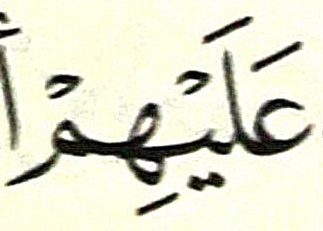 عَلَيْهِمْ أَ